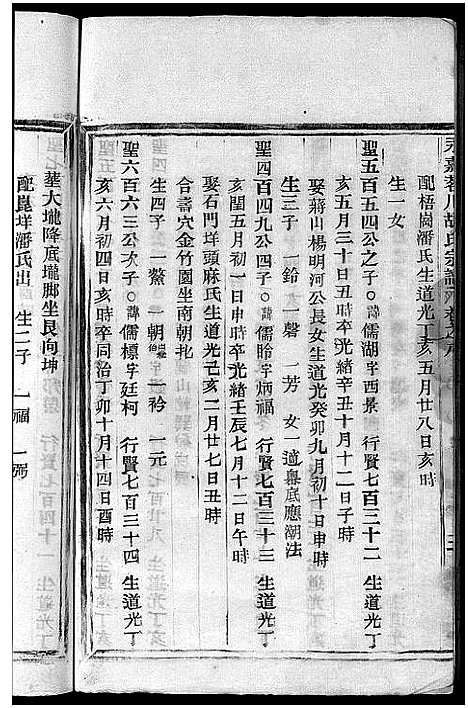 永嘉蓉川胡氏宗譜
配梧崗潘氏生道光丁亥五月廿八日亥時
生一女
聖五百五四公之子 諱儒湖字西景 行賢七百三十二 生道光丁
亥五月三十日丑時卒光緒辛丑十月十二日子時
娶蔣山楊明河公長女生道光癸卯九月初十日申時
生三子 一鈴 一磬 一芳 女一適與底應潮法
聖四百四九公四子 諱儒聆字炳福 行賢七百三十三 生道光丁
亥閏五月初一日申時卒光緒壬辰七月十二日午時
娶石門垟頭麻氏生道光己亥二月廿七日丑時
合壽穴金竹園坐南朝北
生四子 一鰲 一朝 一衿 一元
聖六百六三公次子 諱儒標字廷柯 行賢七百三十四 生道光丁
亥六月初四日亥時卒同治丁卯十月十四日酉時
葬大壠降底壠脚坐艮向坤
配崑垟潘氏出 生二子 一福 一弼